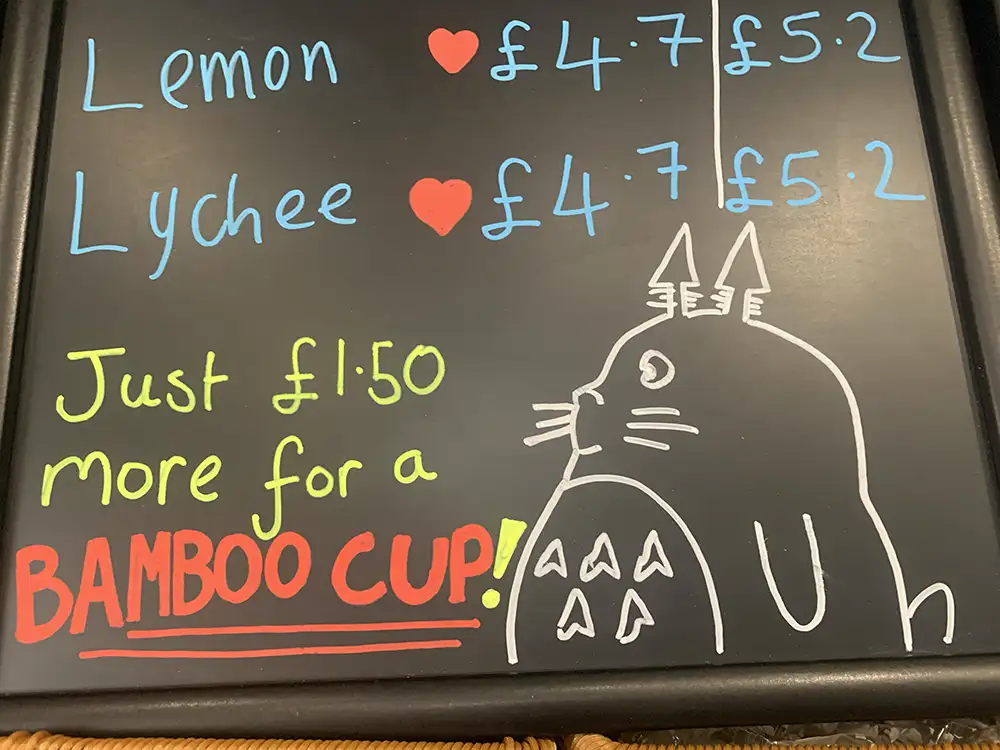 Lemon ♥ £4.7 £5.2
Lychee ♥ £4.7 £5.2
Just £1.50
more for a
BAMBOO CUP!